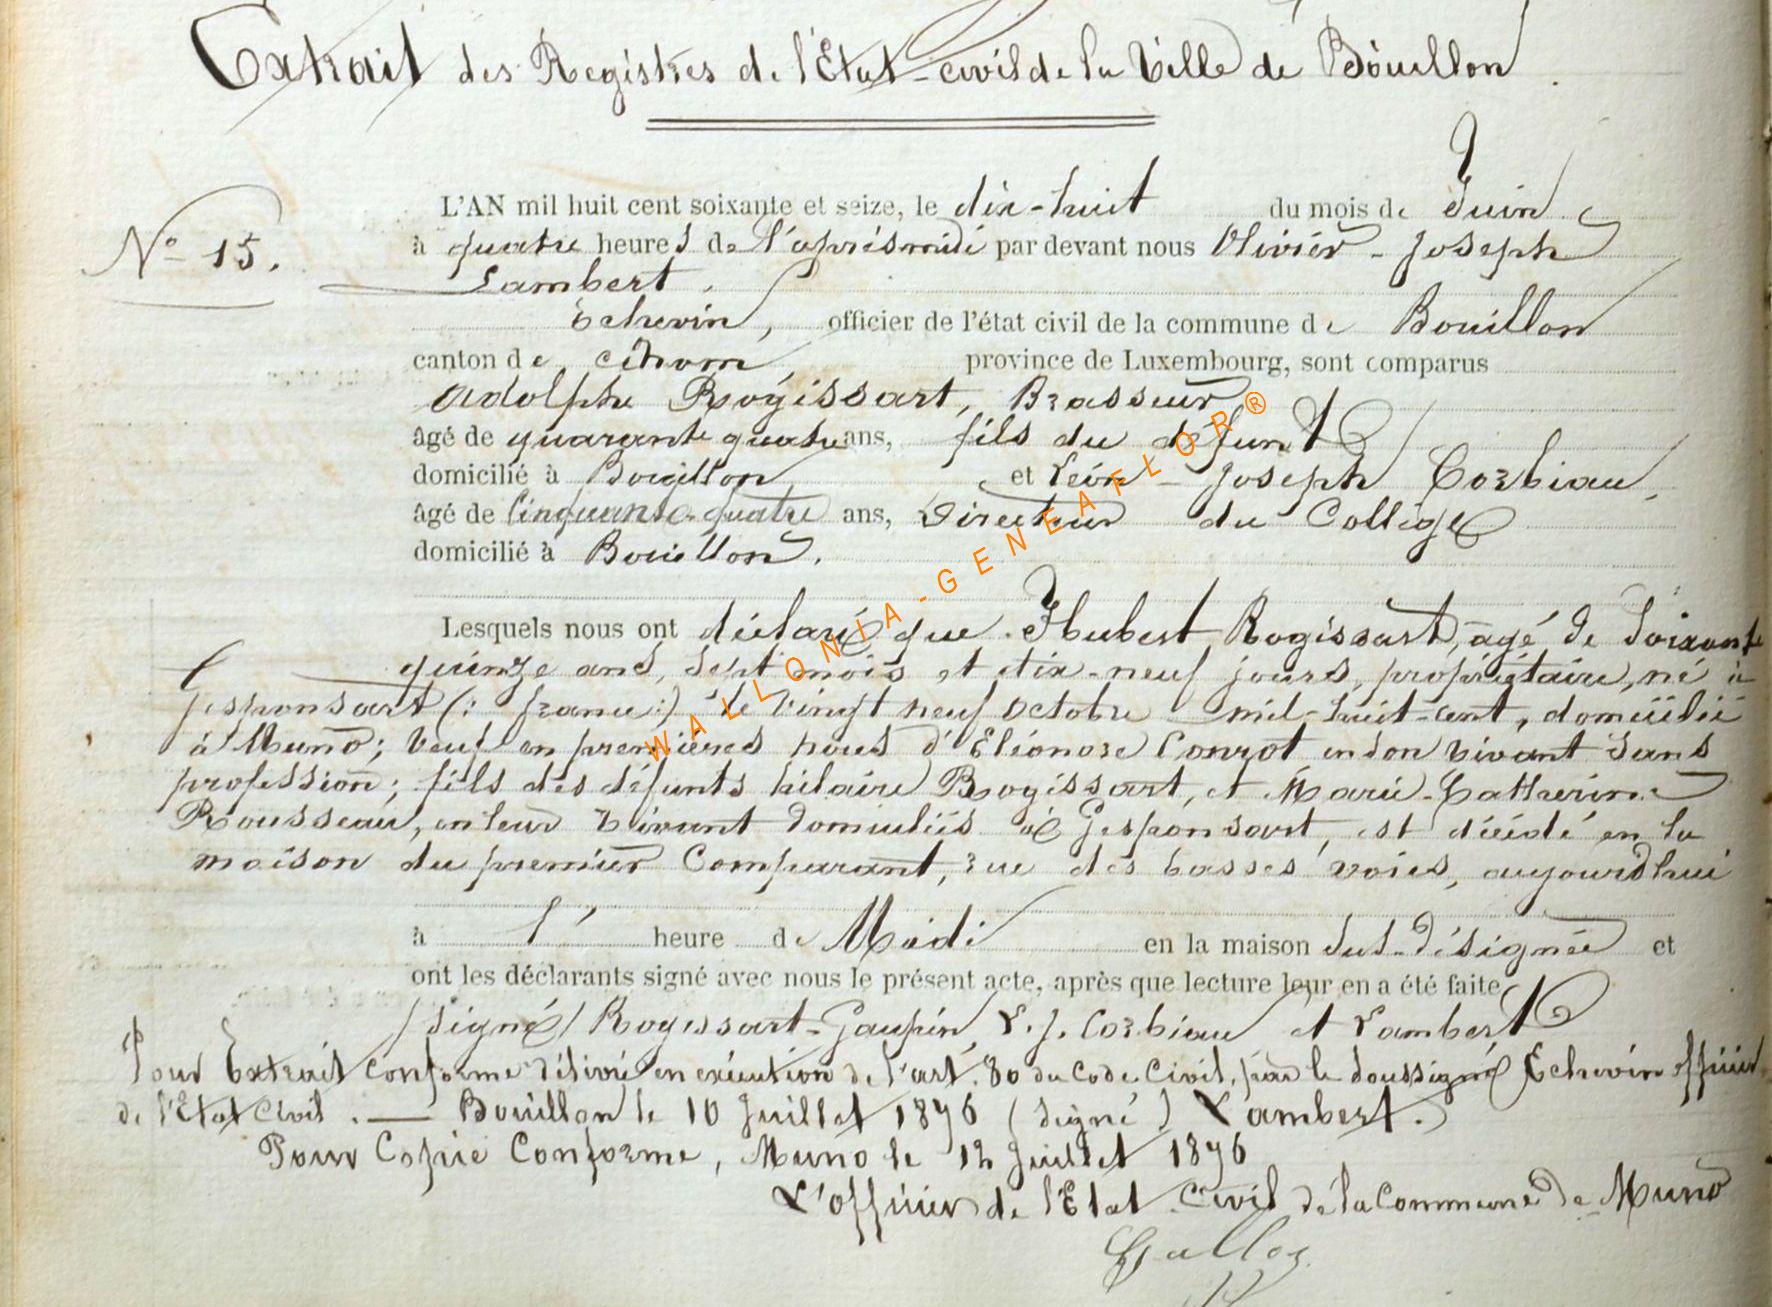 Extrait des Registres de l'Etat-civil de la Ville de Bouillon
N° 15.
L'AN mil huit cent soixante et seize, le dix-huit du mois de Juin
à quatre heures de l'après midi par devant nous Olivier - Joseph
Lambert.
Echevin, officier de l'état civil de la commune de Bouillon
canton de province de Luxembourg, sont comparus
Adolphe Rogissart, Brasseur
âgé de quarante quatre ans, fils du défunt
domicilié à Bouillon et Léon - Joseph Corbiau,
âgé de Cinquante-quatre ans, Directeur du Collège
domicilié à Bouillon.
Lesquels nous ont déclaré que Hubert Rogissart, âgé de Soixante
quinze ans, sept mois et dix-neuf jours, propriétaire, né à
Gesponsart (: france:) le vingt neuf Octobre mil-huit-cent, domicilié
à Muno; Veuf en premières noces d'Eléonore Conrot en son vivant sans
profession; fils des défunts hilaire Rogissart, et Marie-Catherine
Rousseau, en leur vivant domiciliés à Gesponsart, est décédé en la
maison du premier Comparant, rue des basses voies, aujourd'hui
à 1' heure de Midi en la maison sus-désignée et
ont les déclarants signé avec nous le présent acte, après que lecture leur en a été faite
(signé) Rogissart-Gaupin, L. J. Corbiau et Lambert
Pour Extrait conforme délivré en exécution de l'art. 80 du Code Civil, par le soussigné Echevin officier
de l'Etat Civil. — Bouillon le 10 Juillet 1876 (signé) Lambert.
Pour Copie Conforme, Muno le 12 Juillet 1876
L'officier de l'Etat Civil de la Commune de Muno
WALLONIA-GENEAFLOR®